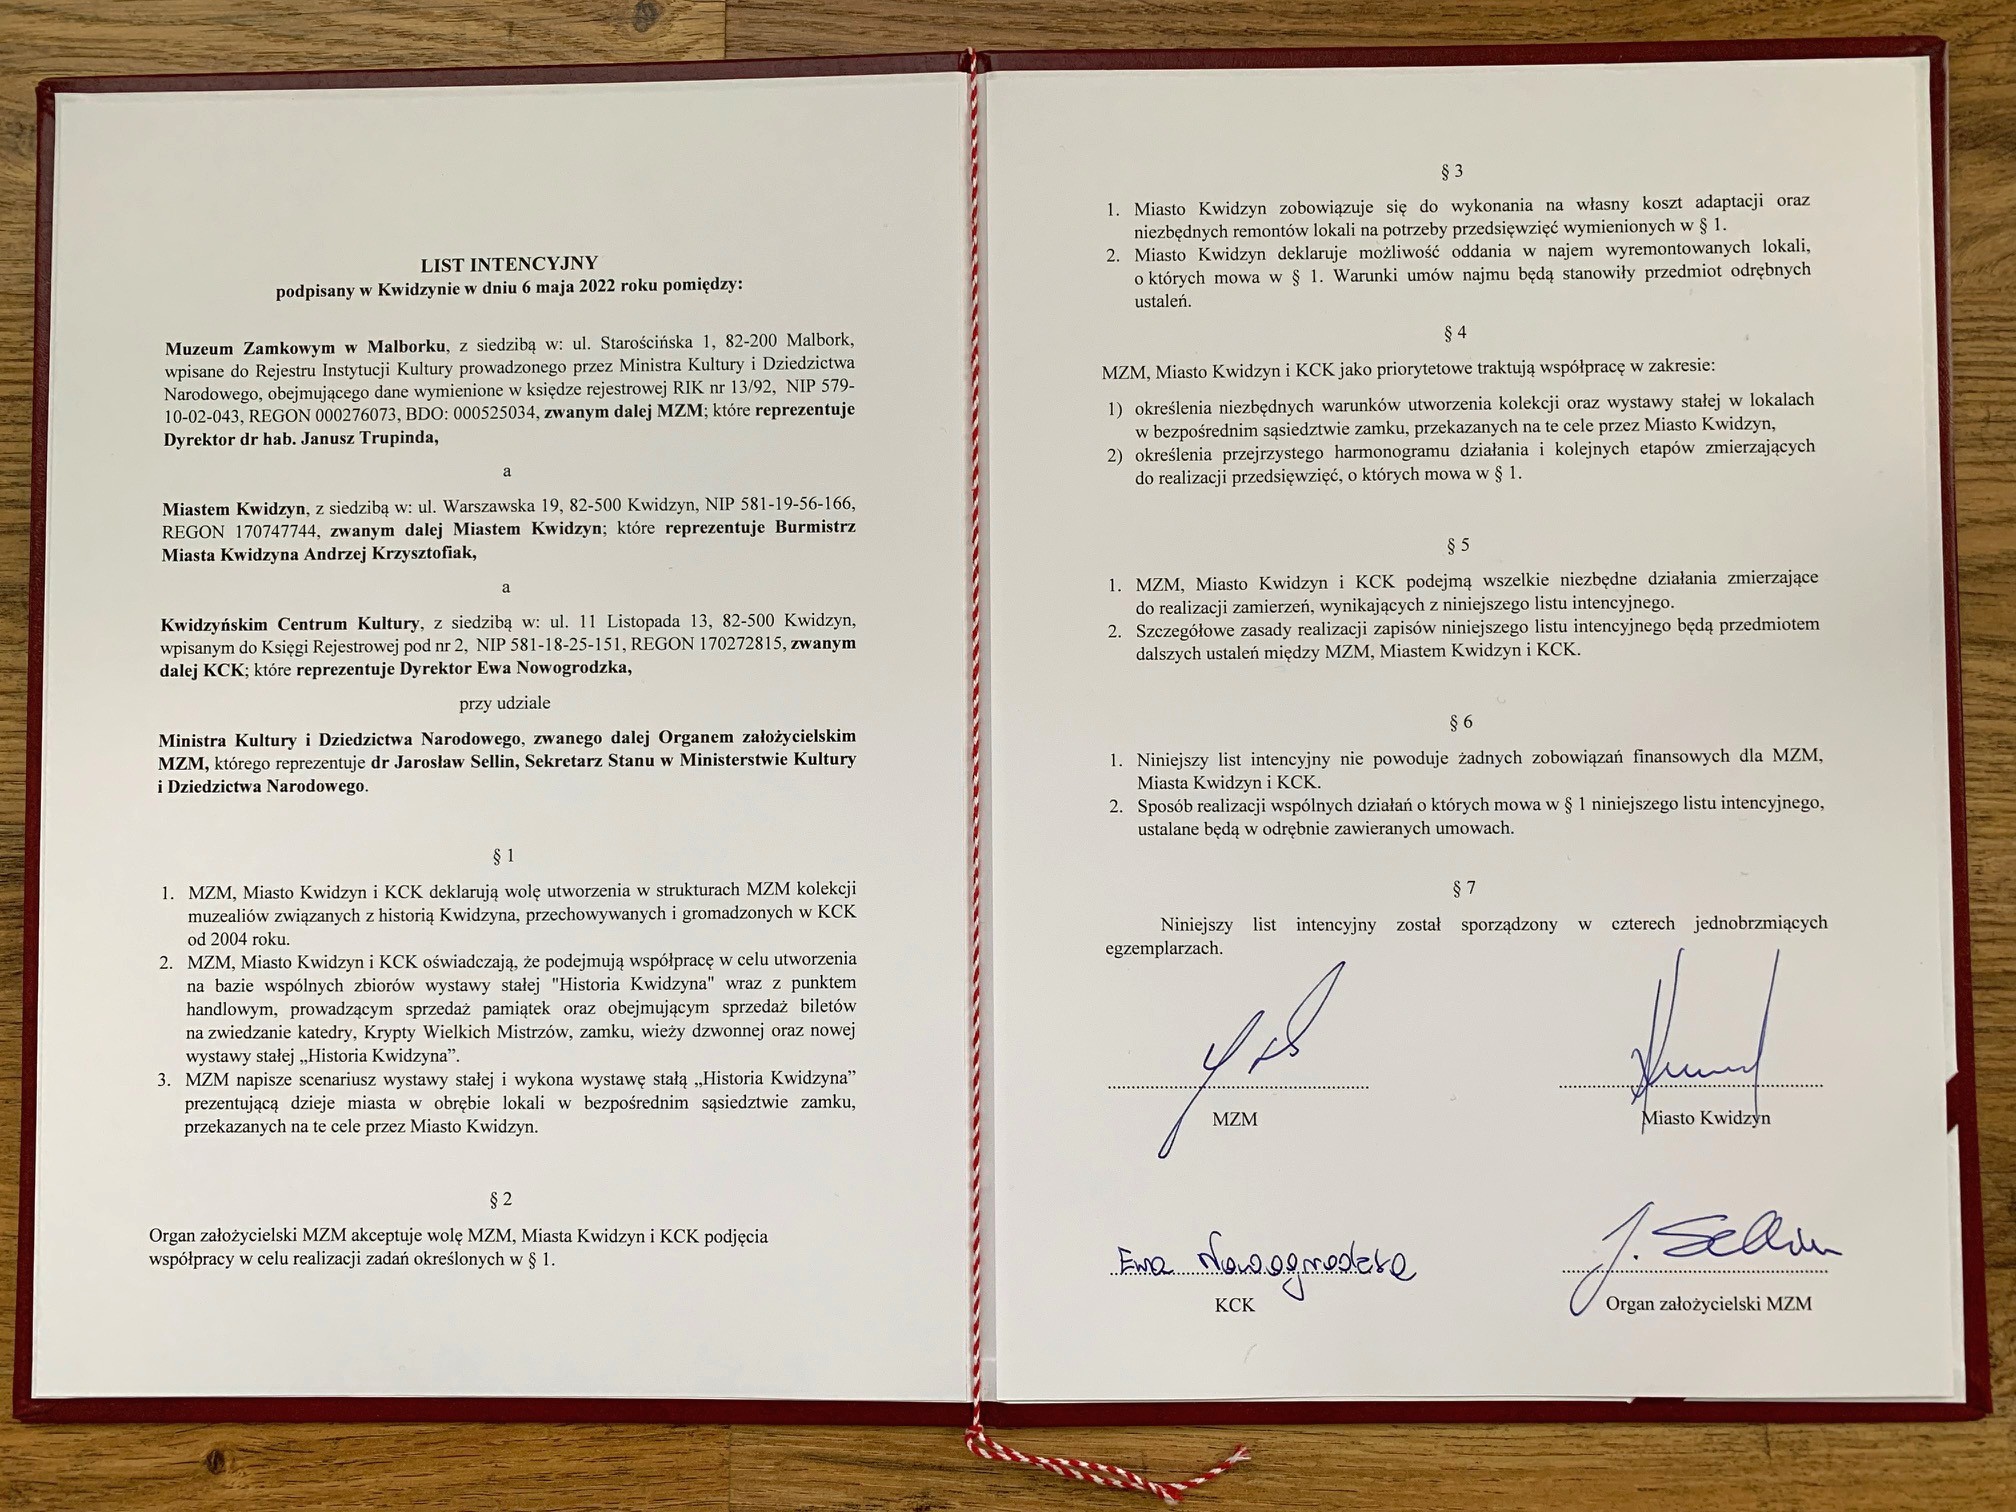 LIST INTENCYJNY
podpisany w Kwidzynie w dniu 6 maja 2022 roku pomiędzy:
Muzeum Zamkowym w Malborku, z siedzibą w: ul. Starościńska 1, 82-200 Malbork,
wpisane do Rejestru Instytucji Kultury prowadzonego przez Ministra Kultury i Dziedzictwa
Narodowego, obejmującego dane wymienione w księdze rejestrowej RIK nr 13/92, NIP 579-
10-02-043, REGON 000276073, BDO: 000525034, zwanym dalej MZM; które reprezentuje
Dyrektor dr hab. Janusz Trupinda,
a
Miastem Kwidzyn, z siedzibą w: ul. Warszawska 19, 82-500 Kwidzyn, NIP 581-19-56-166,
REGON 170747744, zwanym dalej Miastem Kwidzyn; które reprezentuje Burmistrz
Miasta Kwidzyna Andrzej Krzysztofiak,
a
Kwidzyńskim Centrum Kultury, z siedzibą w: ul. 11 Listopada 13, 82-500 Kwidzyn,
wpisanym do Księgi Rejestrowej pod nr 2, NIP 581-18-25-151, REGON 170272815, zwanym
dalej KCK; które reprezentuje Dyrektor Ewa Nowogrodzka,
przy udziale
Ministra Kultury i Dziedzictwa Narodowego, zwanego dalej Organem założycielskim
MZM, którego reprezentuje dr Jarosław Sellin, Sekretarz Stanu w Ministerstwie Kultury
i Dziedzictwa Narodowego.
§ 1
1. MZM, Miasto Kwidzyn i KCK deklarują wolę utworzenia w strukturach MZM kolekcji
muzealiów związanych z historią Kwidzyna, przechowywanych i gromadzonych w KCK
od 2004 roku.
2. MZM, Miasto Kwidzyn i KCK oświadczają, że podejmują współpracę w celu utworzenia
na bazie wspólnych zbiorów wystawy stałej "Historia Kwidzyna" wraz z punktem
handlowym, prowadzącym sprzedaż pamiątek oraz obejmującym sprzedaż biletów
na zwiedzanie katedry, Krypty Wielkich Mistrzów, zamku, wieży dzwonnej oraz nowej
wystawy stałej „Historia Kwidzyna”.
3. MZM napisze scenariusz wystawy stałej i wykona wystawę stałą „Historia Kwidzyna”
prezentującą dzieje miasta w obrębie lokali w bezpośrednim sąsiedztwie zamku,
przekazanych na te cele przez Miasto Kwidzyn.
§ 2
Organ założycielski MZM akceptuje wolę MZM, Miasta Kwidzyn i KCK podjęcia
współpracy w celu realizacji zadań określonych w § 1.
§ 3
1. Miasto Kwidzyn zobowiązuje się do wykonania na własny koszt adaptacji oraz
niezbędnych remontów lokali na potrzeby przedsięwzięć wymienionych w § 1.
2. Miasto Kwidzyn deklaruje możliwość oddania w najem wyremontowanych lokali,
o których mowa w § 1. Warunki umów najmu będą stanowiły przedmiot odrębnych
ustaleń.
§ 4
MZM, Miasto Kwidzyn i KCK jako priorytetowe traktują współpracę w zakresie:
1) określenia niezbędnych warunków utworzenia kolekcji oraz wystawy stałej w lokalach
w bezpośrednim sąsiedztwie zamku, przekazanych na te cele przez Miasto Kwidzyn,
2) określenia przejrzystego harmonogramu działania i kolejnych etapów zmierzających
do realizacji przedsięwzięć, o których mowa w § 1.
§ 5
1. MZM, Miasto Kwidzyn i KCK podejmą wszelkie niezbędne działania zmierzające
do realizacji zamierzeń, wynikających z niniejszego listu intencyjnego.
2. Szczegółowe zasady realizacji zapisów niniejszego listu intencyjnego będą przedmiotem
dalszych ustaleń między MZM, Miastem Kwidzyn i KCK.
§ 6
1. Niniejszy list intencyjny nie powoduje żadnych zobowiązań finansowych dla MZM,
Miasta Kwidzyn i KCK.
2. Sposób realizacji wspólnych działań o których mowa w § 1 niniejszego listu intencyjnego,
ustalane będą w odrębnie zawieranych umowach.
§ 7
Niniejszy list intencyjny został sporządzony w czterech jednobrzmiących
egzemplarzach.
MZM
Miasto Kwidzyn
Ewa Nowogrodzka
J. Sellin
KCK
Organ założycielski MZM